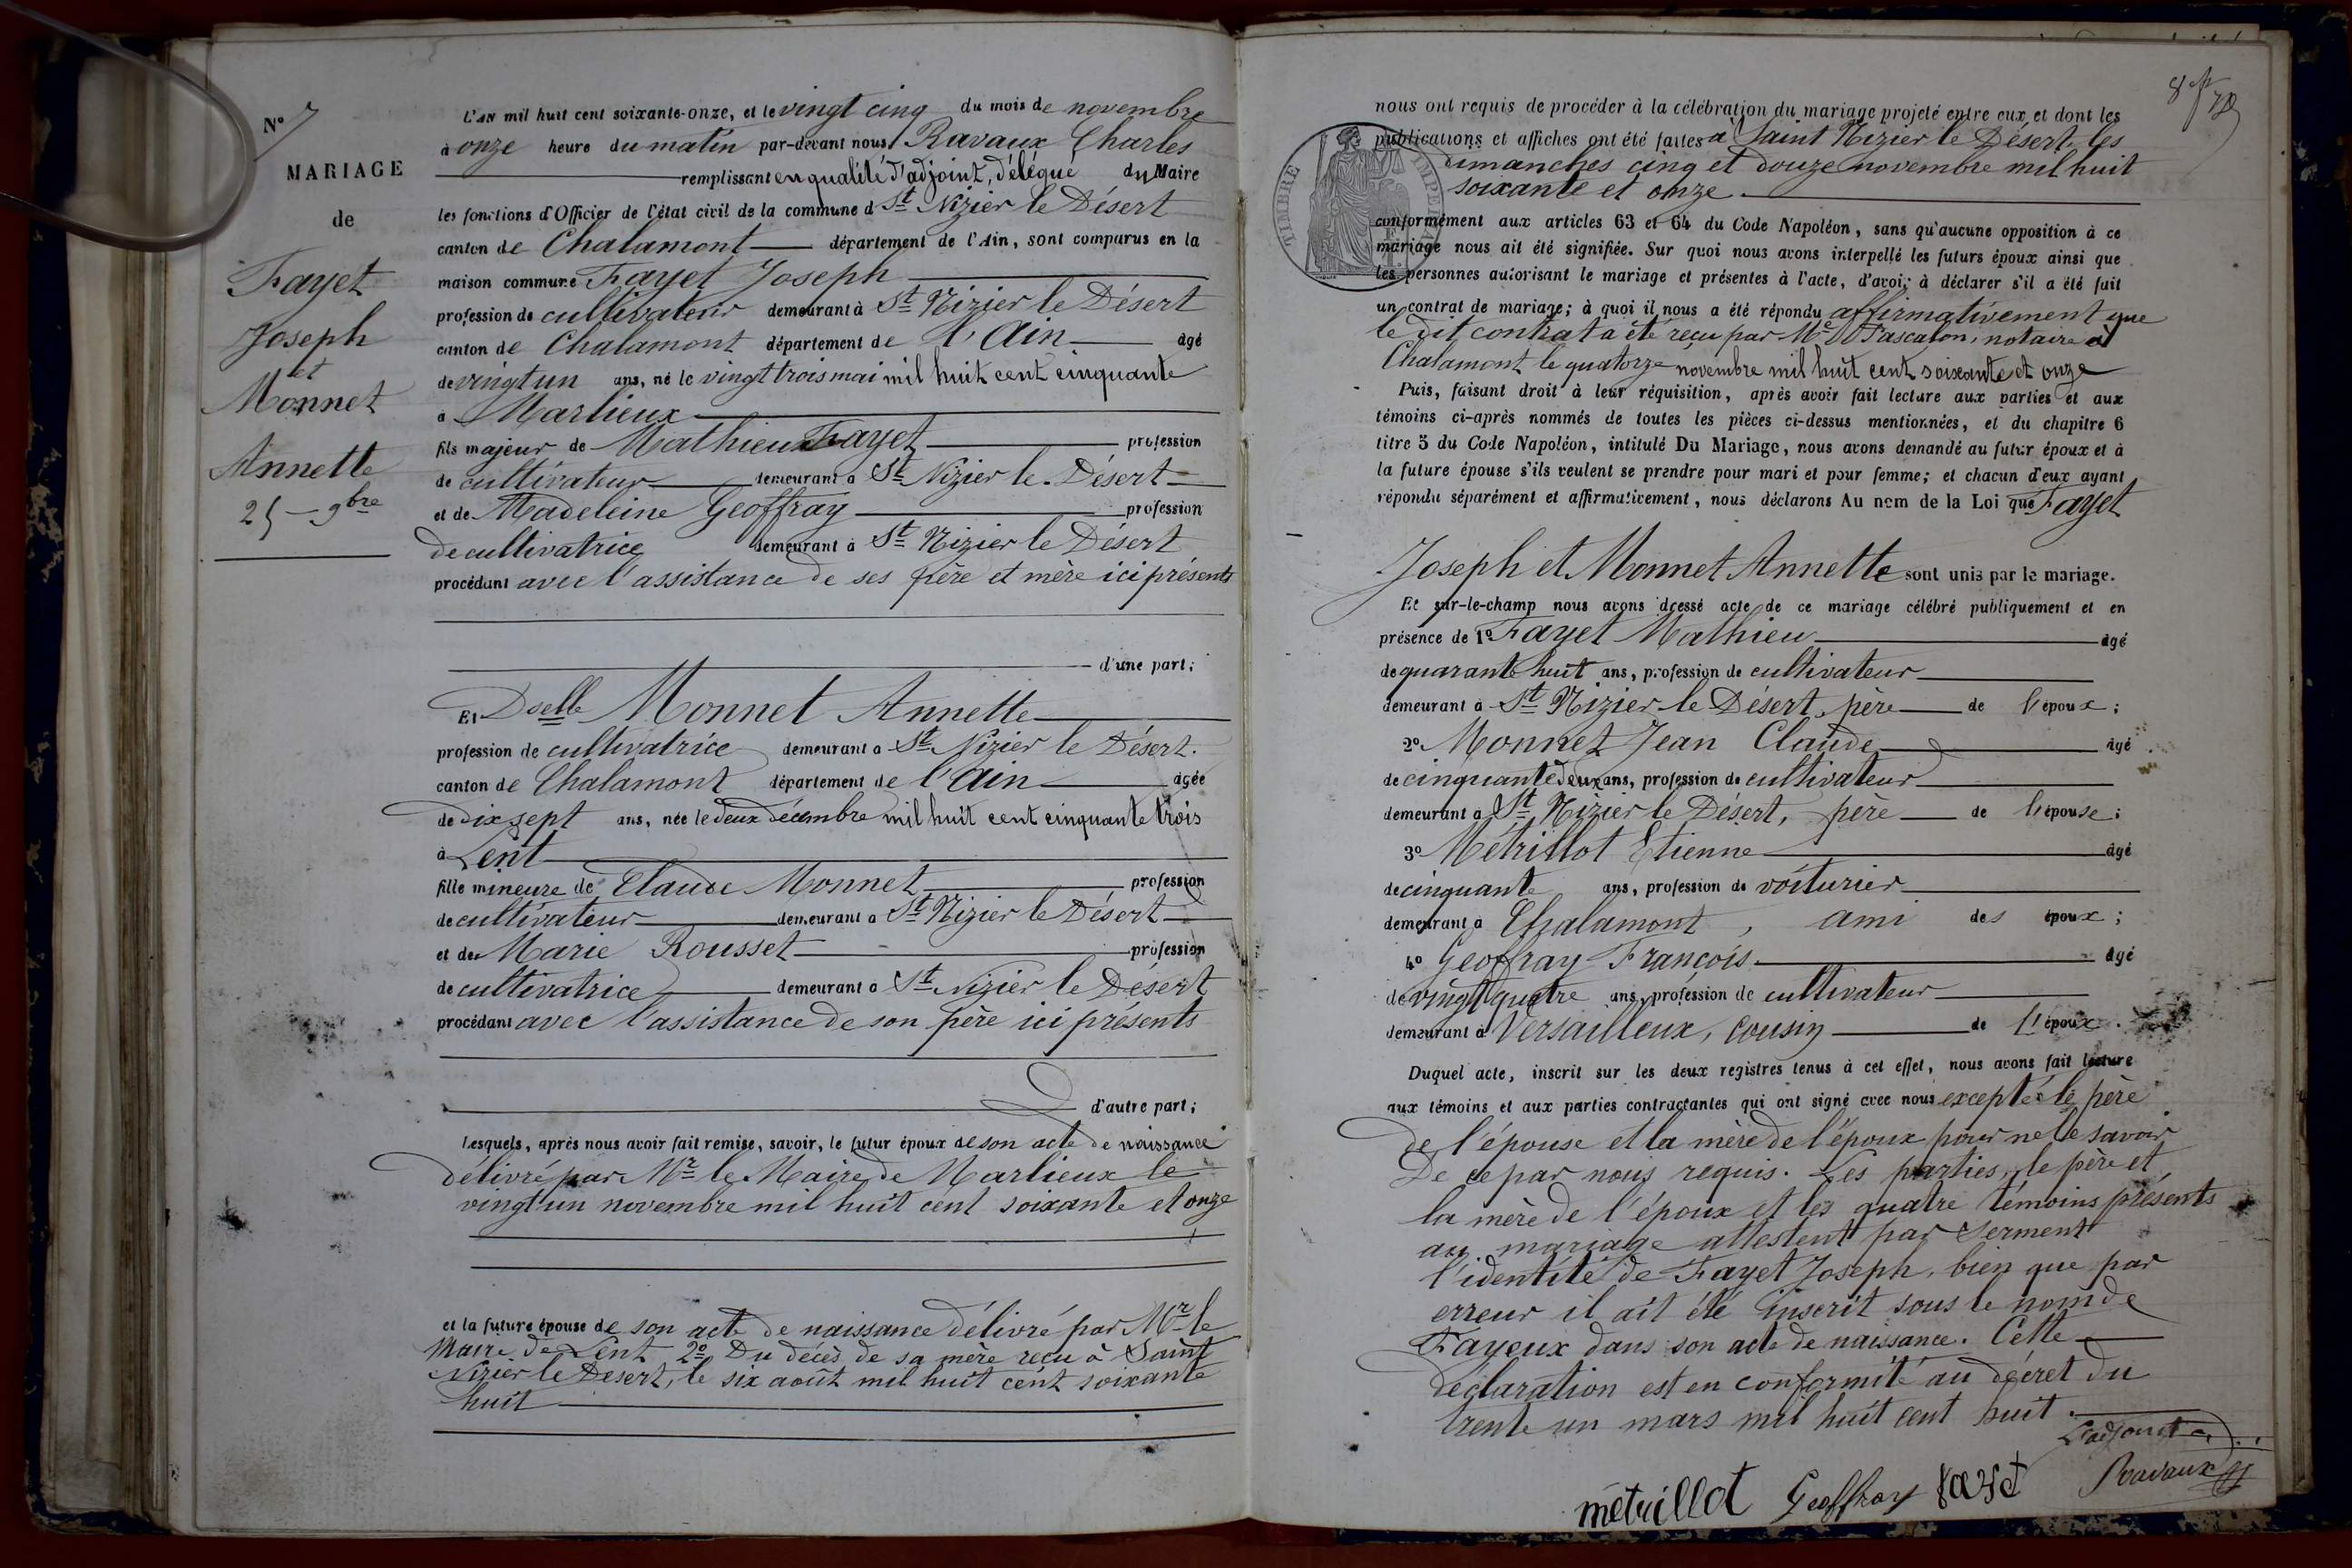 N° 7
MARIAGE
de
Fayet
Joseph
et
Monnet
Annette
25 – 9bre
L'AN mil huit cent soixante-onze, et le vingt cinq du mois de novembre
à onze heure du matin par-devant nous Ravaux Charles
remplissant en qualité d'adjoint, délégué du Maire
les fonctions d'Officier de l'état civil de la commune d St Nizier le Désert
canton de Chalamont département de l'Ain, sont comparus en la
maison commune Fayet Joseph
profession de cultivateur demeurant à St Nizier le Désert
canton de Chalamont département de l'Ain âgé
de vingt un ans, né le vingt trois mai mil huit cent cinquante
à Marlieux
fils majeur de Mathieu Fayet profession
de cultivateur demeurant à St Nizier le Désert
et de Madeleine Geoffray profession
de cultivatrice demeurant à St Nizier le Désert
procédant avec l'assistance de ses père et mère ici présents
d'une part;
Et Dselle Monnet Annette
profession de cultivatrice demeurant à St Nizier le Désert.
canton de Chalamont département de l'Ain âgée
de dix sept ans, née le deux décembre mil huit cent cinquante trois
à Lent
fille mineure de Claude Monnet profession
de cultivateur demeurant à St Nizier le Désert
et de Marie Rousset profession
de cultivatrice demeurant à St Nizier le Désert
procédant avec l'assistance de son père ici présents
d'autre part;
Lesquels, après nous avoir fait remise, savoir, le futur époux de son acte de naissance
délivré par Mr le Maire de Marlieux le
vingt un novembre mil huit cent soixante et onze
et la future épouse de son acte de naissance délivré par Mr le
Maire de Lent 2° Du décès de sa mère reçu à Saint
Nizier le Désert, le six août mil huit cent soixante
huit
nous ont requis de procéder à la célébration du mariage projeté entre eux et dont les
publications et affiches ont été faites à Saint Nizier le Désert, les
dimanches cinq et douze novembre mil huit
soixante et onze
TIMBRE IMPER
conformément aux articles 63 et 64 du Code Napoléon, sans qu'aucune opposition à ce
mariage nous ait été signifiée. Sur quoi nous avons interpellé les futurs époux ainsi que
les personnes autorisant le mariage et présentes à l'acte, d'avoir à déclarer s'il a été fait
un contrat de mariage; à quoi il nous a été répondu affirmativement que
le dit contrat a été reçu par Me Pascalon, notaire à
Chalamont le quatorze novembre mil huit cent soixante et onze
Puis, faisant droit à leur réquisition, après avoir fait lecture aux parties et aux
témoins ci-après nommés de toutes les pièces ci-dessus mentionnées, et du chapitre 6
titre 5 du Code Napoléon, intitulé Du Mariage, nous avons demandé au futur époux et à
la future épouse s'ils veulent se prendre pour mari et pour femme; et chacun d'eux ayant
répondu séparément et affirmativement, nous déclarons Au nom de la Loi que Fayet
Joseph et Monnet Annette sont unis par le mariage.
Et sur-le-champ nous avons dressé acte de ce mariage célébré publiquement et en
présence de 1° Fayet Mathieu âgé
de quarante huit ans, profession de cultivateur
demeurant à St Nizier le Désert, père de l'époux;
2° Monnet Jean Claude âgé
de cinquante deux ans, profession de cultivateur
demeurant à St Nizier le Désert, père de l'épouse;
3° Métrillot Etienne âgé
de cinquante ans, profession de voiturier
demeurant à Chalamont, ami des époux;
4° Geoffray François âgé
de vingt quatre ans, profession de cultivateur
demeurant à Versailleux, cousin de l'époux.
Duquel acte, inscrit sur les deux registres tenus à cet effet, nous avons fait lecture
aux témoins et aux parties contractantes qui ont signé avec nous excepté le père
de l'épouse et la mère de l'époux pour ne le savoir
De ce par nous requis. Les parties, le père et
la mère de l'époux et les quatre témoins présents
au mariage attestent par serment
l'identité de Fayet Joseph, bien que par
erreur il ait été inscrit sous le nom de
Fayeux dans son acte de naissance. Cette
déclaration est en conformité au décret du
trente un mars mil huit cent huit.
L'adjoint
métrillot Geoffray fayet Ravaux